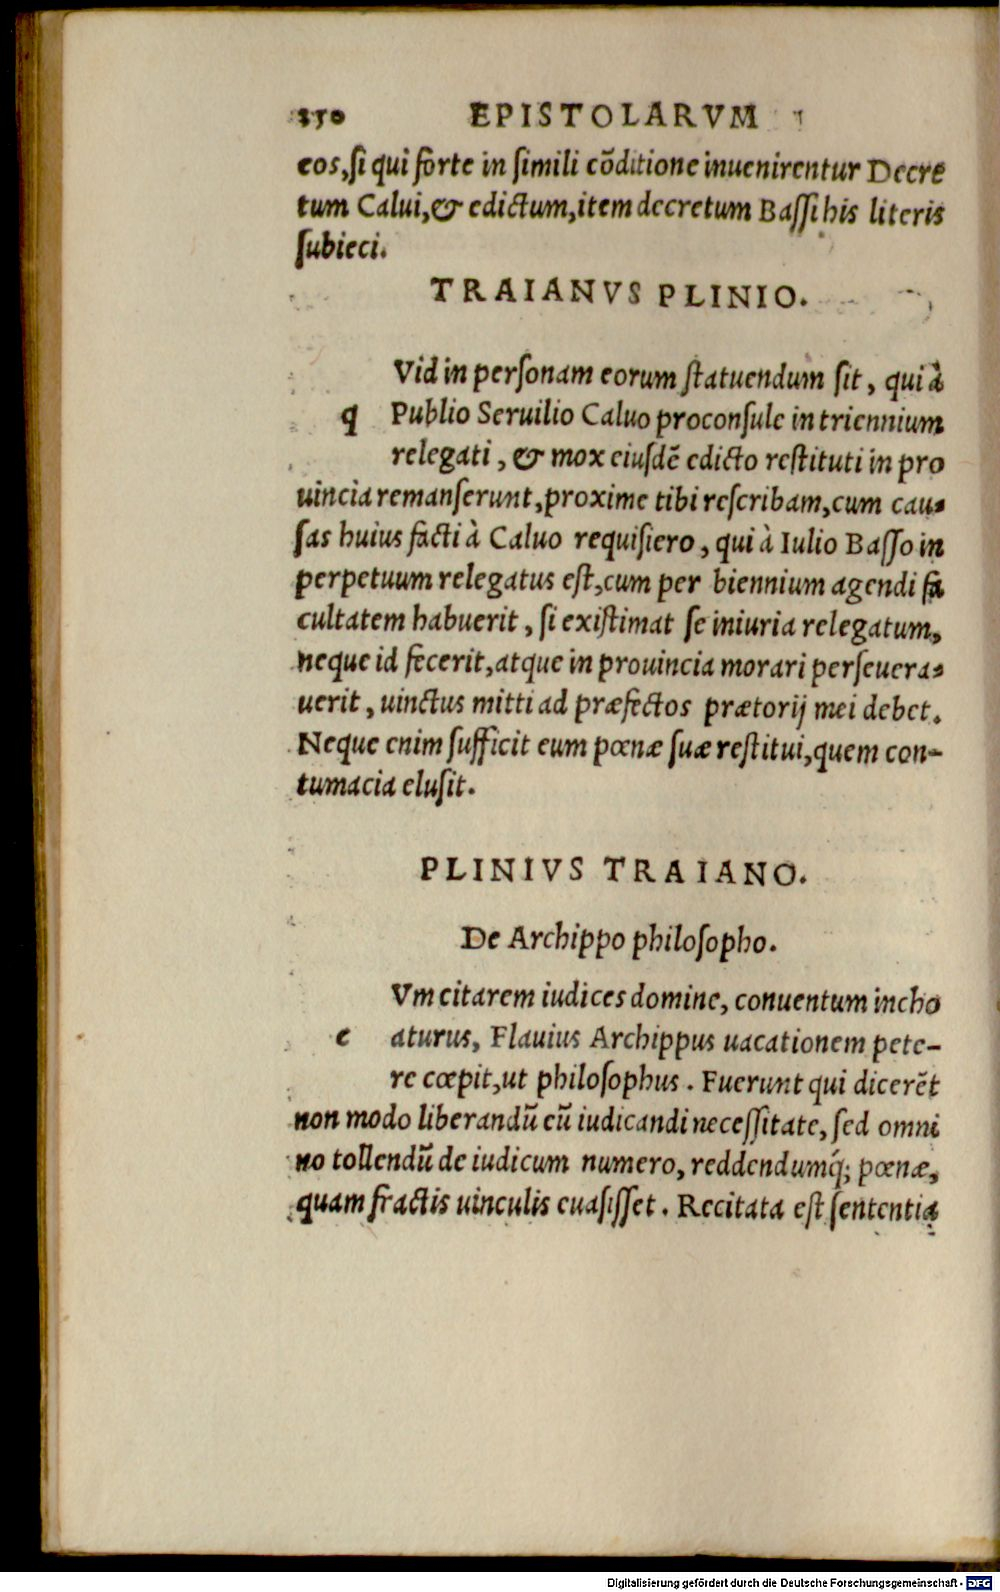 350 EPISTOLARVM
eos,ſi qui forte in ſimili cōditione inuenirentur Decre
tum Calui,& edictum,item decretum Baſſi his literis
ſubieci.
TRAIANVS PLINIO.
Vid in perſonam eorum ſtatuendum ſit, qui à
q Publio Seruilio Caluo proconſule in triennium
relegati, & mox eiuſdē edicto reſtituti in pro
uincia remanſerunt,proxime tibi reſcribam,cum cau-
ſas huius facti à Caluo requiſiero, qui à Iulio Baſſo in
perpetuum relegatus eſt,cum per biennium agendi fa
cultatem habuerit, ſi exiſtimat ſe iniuria relegatum,
neque id fecerit,atque in prouincia morari perſeuera-
uerit, uinctus mitti ad præfectos prætorij mei debet.
Neque enim ſufficit eum pœnæ ſuæ reſtitui,quem con-
tumacia eluſit.
PLINIVS TRAIANO.
De Archippo philoſopho.
Vm citarem iudices domine, conuentum incho
c aturus, Flauius Archippus uacationem pete-
re cœpit,ut philoſophus. Fuerunt qui dicerēt
non modo liberandū eū iudicandi neceſſitate, ſed omni
no tollendū de iudicum numero, reddendumq́; pœnæ,
quam fractis uinculis euaſiſſet. Recitata eſt ſententia
Digitalisierung gefördert durch die Deutsche Forschungsgemeinschaft - DFG